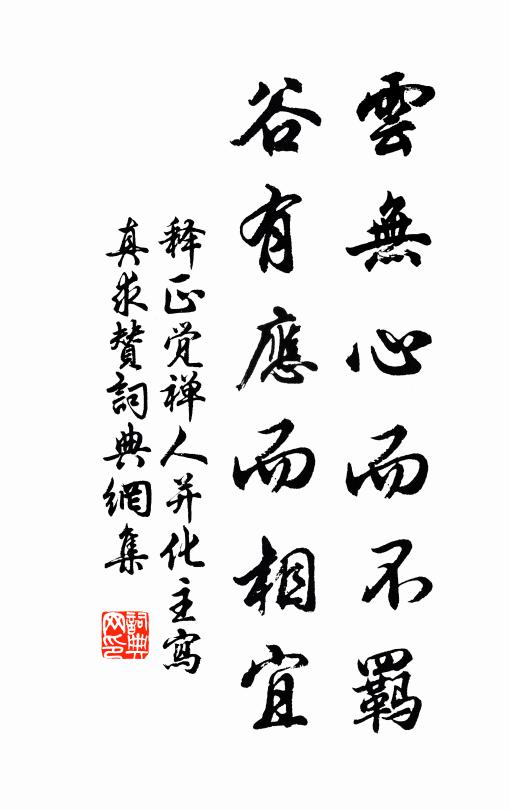 雲無心而不羈
谷有應而相宜
释正覺禅人并化主寫
真求贊詞典網集
詞典
网印